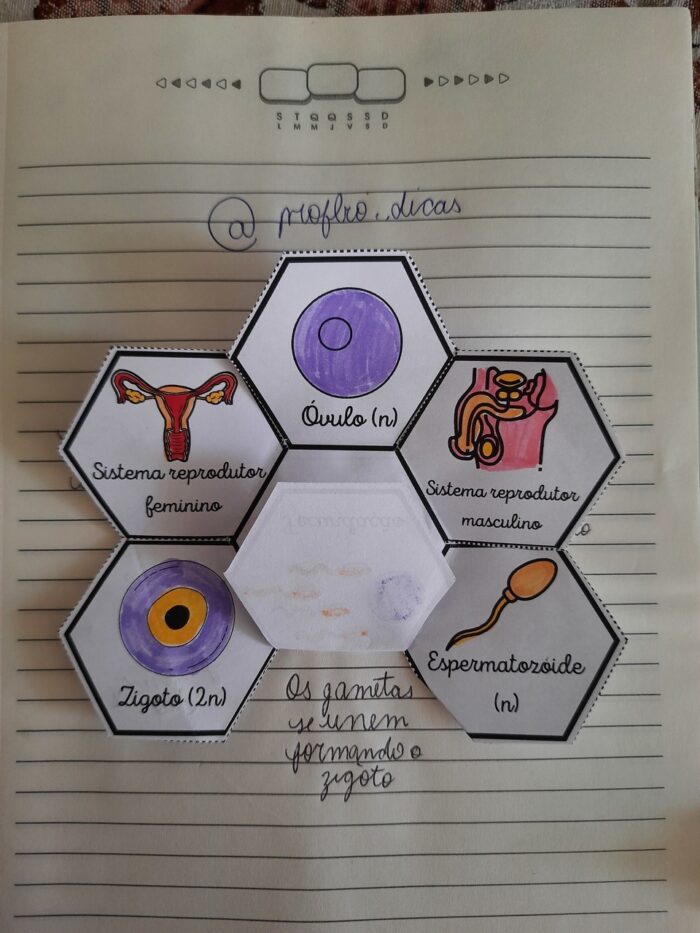 S T Q Q S S D
L M M J V S D
@ proflró..dicas
Óvulo (n)
Sistema reprodutor
feminino
Sistema reprodutor
masculino
fecundação
Zigoto (2n)
Espermatozóide
(n)
Os gametas
se unem
formando o
zigoto